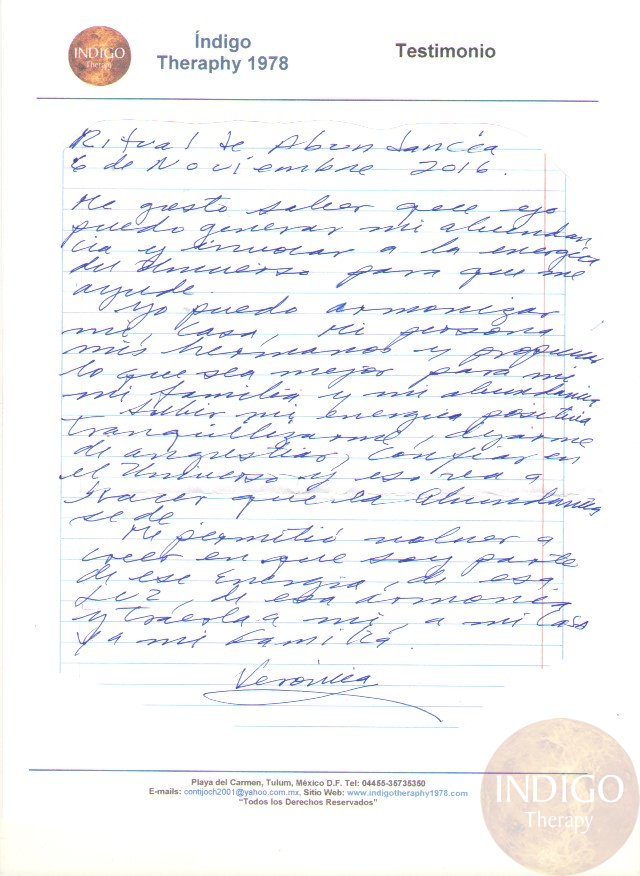 INDIGO
Therapy
Índigo
Theraphy 1978
Testimonio
Ritual de Abundancia
6 de Noviembre 2016.
Me gusto saber que yo
puedo generar mi abundan
cia y invocar a la energía
del Universo para que me
ayude.
Yo puedo armonizar
mi casa, Mi persona
mis hermanos y
lo que sea mejor para mi
mi familia y mi abundancia
Subir mi energia positiva
tranquilizarme, dejarme
de angustiar, confiar en
el Universo y eso va a
hacer que la Abundancia
se de
Me permitió volver a
creer en que soy parte
de ese Energía, de esa
Luz, de esa armonia
y tráerla a mi, a mi Casa
y a mi Familia.
Verónica
Playa del Carmen, Tulum, México D.F. Tel: 04455-35735350
E-mails: contijoch2001@yahoo.com.mx, Sitio Web: www.indigotheraphy1978.com
"Todos los Derechos Reservados"
INDIGO
Therapy